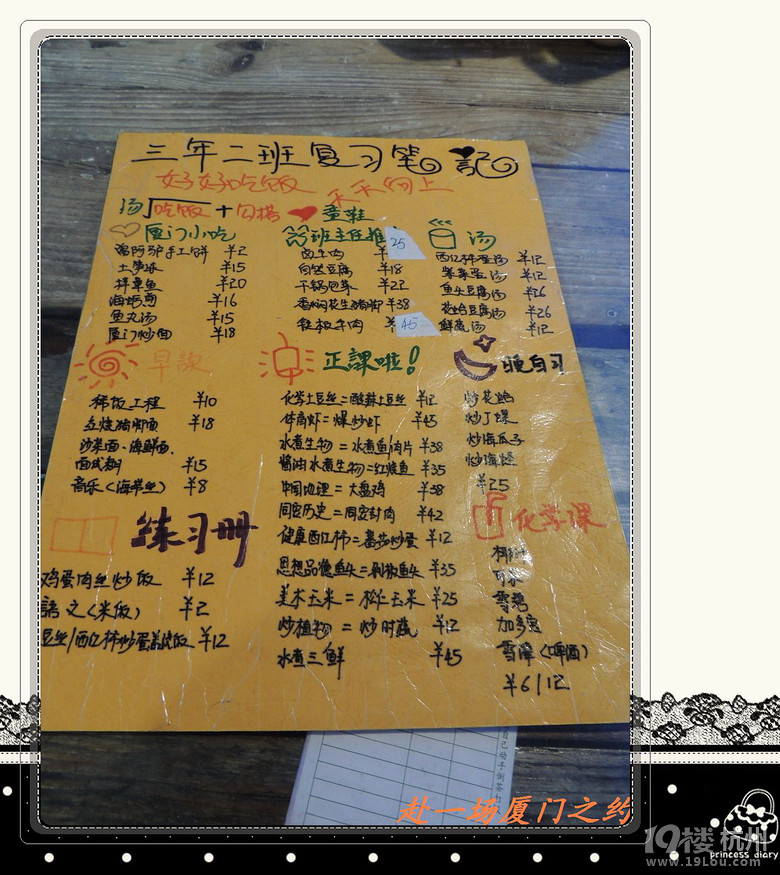 三年二班复习笔記
好好吃饭 天天向上
汤 吃饭+勾搭 童鞋
厦门小吃
¥2
土笋冻 ¥15
拌章鱼 ¥20
海蛎煎 ¥16
鱼丸汤 ¥15
厦门炒面 ¥18
班主任推 25
卤牛肉 ¥
自然豆腐 ¥18
干锅包菜 ¥22
香焖花生猪脚 ¥38
铁板牛肉 ¥45
汤
西红柿蛋汤 ¥12
紫菜蛋汤 ¥12
鱼头豆腐汤 ¥26
花蛤豆腐汤 ¥26
鲜蔬汤 ¥12
早課
稀饭工程 ¥10
红烧猪脚面 ¥18
沙茶面、海鲜面、
面式都 ¥15
音乐(海带丝) ¥8
练习册
鸡蛋肉丝炒饭 ¥12
語文(米饭) ¥2
豆丝/西红柿炒蛋盖浇饭 ¥12
正課啦!
化学土豆丝=酸辣土豆丝 ¥12
体育虾=爆炒虾 ¥45
水煮生物=水煮鱼/肉片 ¥38
酱油水煮生物=红烧鱼 ¥35
中国地理=大盘鸡 ¥38
同安历史=同安封肉 ¥42
健康西红柿=番茄炒蛋 ¥12
思想品德鱼头=剁椒鱼头 ¥35
美术玉米=松仁玉米 ¥25
炒植物=炒时蔬 ¥12
水煮三鲜 ¥45
晚自习
炒花蛤
炒丁螺
炒海瓜子
炒海蛏
¥25
化学课
椰汁
可乐
雪碧
加多宝
雪津(啤酒)
¥6/12
自己动手倒茶
赴一场厦门之约
19楼 杭州
www.19lou.com
princess diary